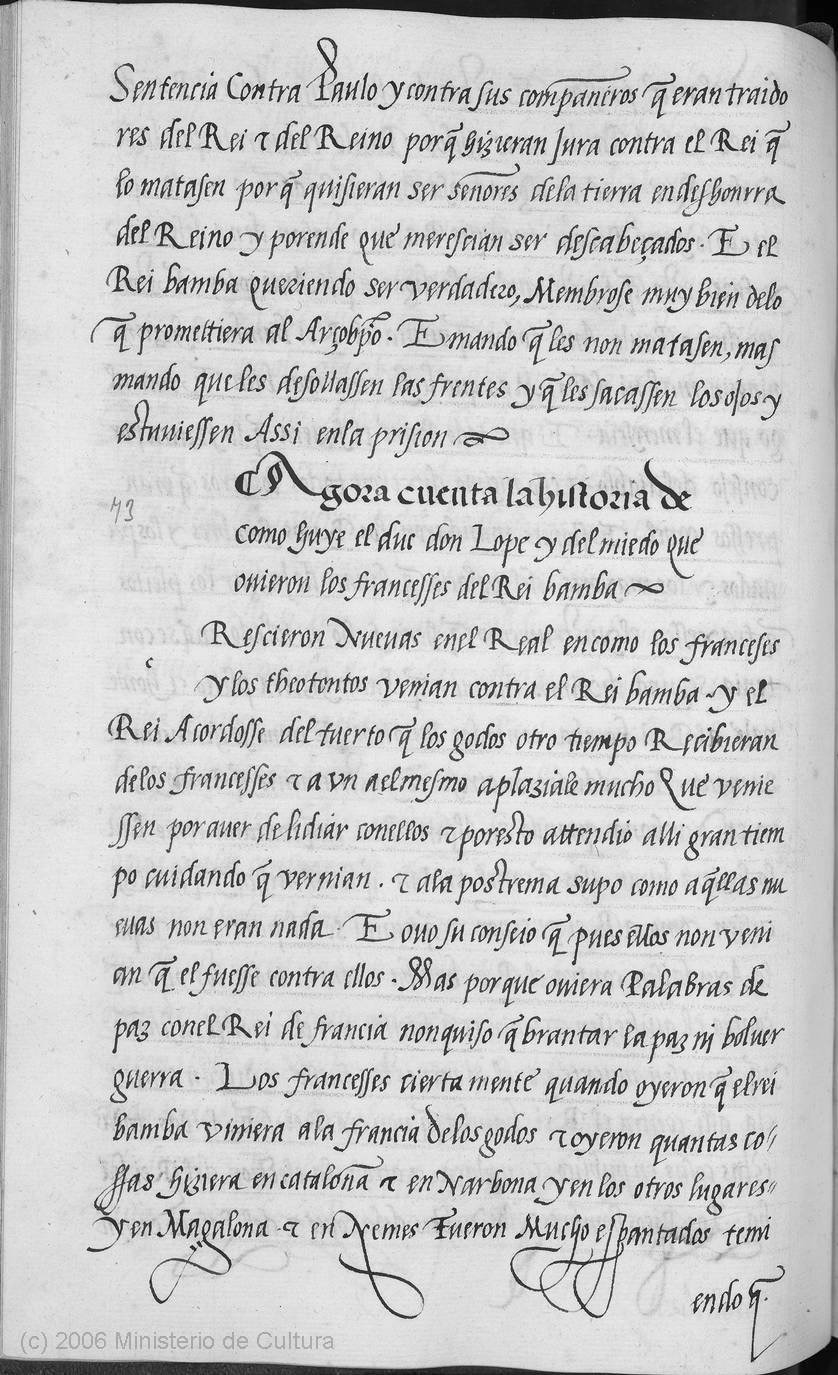 Sentencia Contra Paulo y contra sus compañeros q̃ eran traido
res del Rei ⁊ del Reino porq̃ hizieran Jura contra el Rei q̃
lo matasen por q̃ quisieran ser señores dela tierra en deshonrra
del Reino y porende que merescian ser descabeçados. E el
Rei bamba queriendo ser verdadero, Membrose muy bien delo
q̃ promettiera al Arçobp̃o. E mando q̃ les non matasen, mas
mando que les desollassen las frentes y q̃ les sacassen los ojos y
estuviessen Assi enla prision
Agora cuenta la historia de
73
como huye el duc don Lope y del miedo que
ovieron los francesses del Rei bamba
Rescieron Nuevas enel Real en como los franceses
c
y los theotontos venian contra el Rei bamba. y el
Rei Acordosse del tuerto q̃ los godos otro tiempo Recibieran
delos francesses ⁊ a vn a el mesmo aplaziale mucho Que venie
ssen por aver de lidiar conellos ⁊ por esto attendio alli gran tiem
po cuidando q̃ vernian. ⁊ ala postrema supo como aq̃llas nu
evas non eran nada. E ovo su conseio q̃ pues ellos non veni
an q̃ el fuesse contra ellos. Mas por que oviera Palabras de
paz conel Rei de francia non quiso q̃brantar la paz ni bolver
guerra. Los francesses cierta mente quando oyeron q̃ el rei
bamba viniera ala francia delos godos ⁊ oyeron quantas co/
ssas hiziera en cataloña ⁊ en Narbona y en los otros lugares
y en Magalona ⁊ en Nemes Fueron Mucho espantados temi
endo q̃.
(c) 2006 Ministerio de Cultura